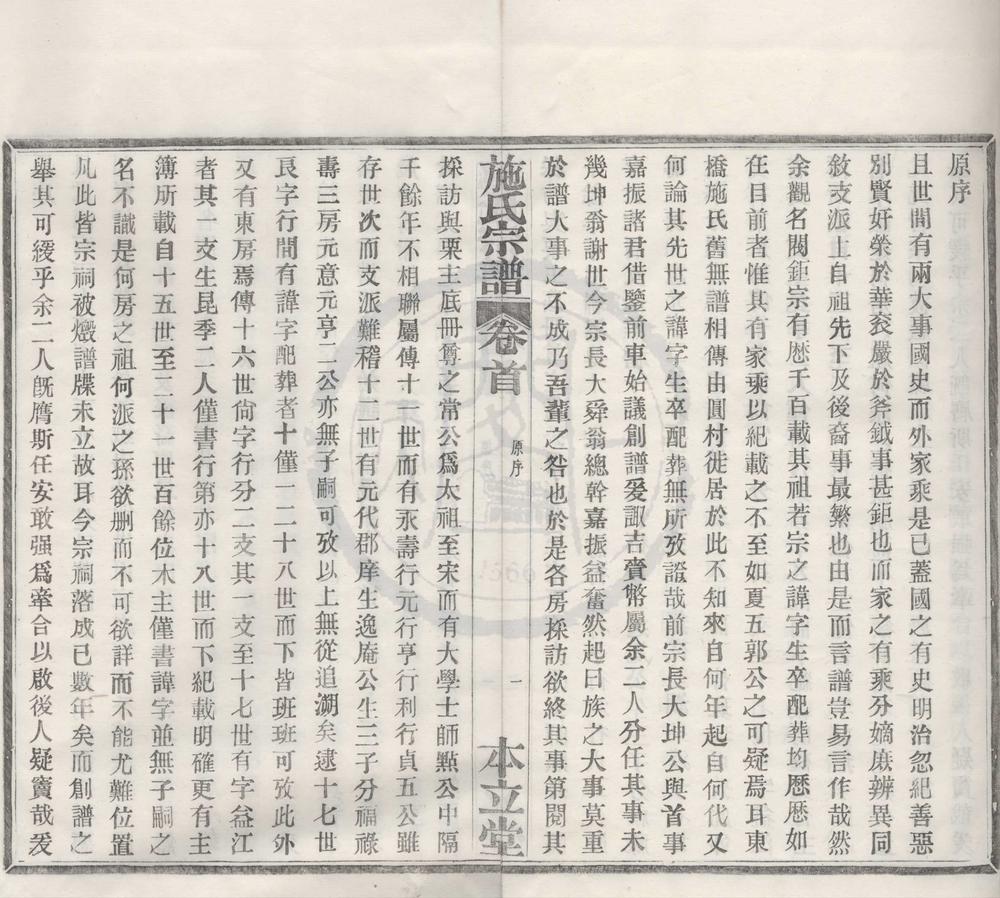 原序
且世間有兩大事國史而外家乘是已蓋國之有史明治忽紀善惡
別賢奸榮於華衮嚴於斧鉞事甚鉅也而家之有乘分嫡庶辨異同
敘支派上自祖先下及後裔事最繁也由是而言譜豈易言作哉然
余觀名閥鉅宗有歷千百載其祖若宗之諱字生卒配葬均歷歷如
在目前者惟其有家乘以紀載之不至如夏五郭公之可疑焉耳東
橋施氏舊無譜相傳由圓村徙居於此不知來自何年起自何代又
何論其先世之諱字生卒配葬無所攷證哉前宗長大坤公與首事
嘉振諸君借鑒前車始議創譜爰諏吉賫幣屬余二人分任其事未
幾坤翁謝世今宗長大舜翁總幹嘉振益奮然起曰族之大事莫重
於譜大事之不成乃吾輩之咎也於是各房採訪欲終其事第閱其
施氏宗譜 卷首 原序 一 本立堂
採訪與栗主底冊尊之常公爲太祖至宋而有大學士師點公中隔
千餘年不相聯屬傳十一世而有永壽行元行亨行利行貞五公雖
存世次而支派難稽十二世有元代郡庠生逸庵公生三子分福祿
壽三房元意元亨二公亦無子嗣可攷以上無從追溯矣逮十七世
良字行間有諱字配葬者十僅一二十八世而下皆班班可攷此外
又有東房焉傳十六世尙字行分二支其一支至十七世有字益江
者其一支生昆季二人僅書行第亦十八世而下紀載明確更有主
簿所載自十五世至二十一世百餘位木主僅書諱字並無子嗣之
名不識是何房之祖何派之孫欲刪而不可欲詳而不能尤難位置
凡此皆宗祠被燬譜牒未立故耳今宗祠落成已數年矣而創譜之
舉其可緩乎余二人旣膺斯任安敢强爲牽合以啟後人疑竇哉爰
1866